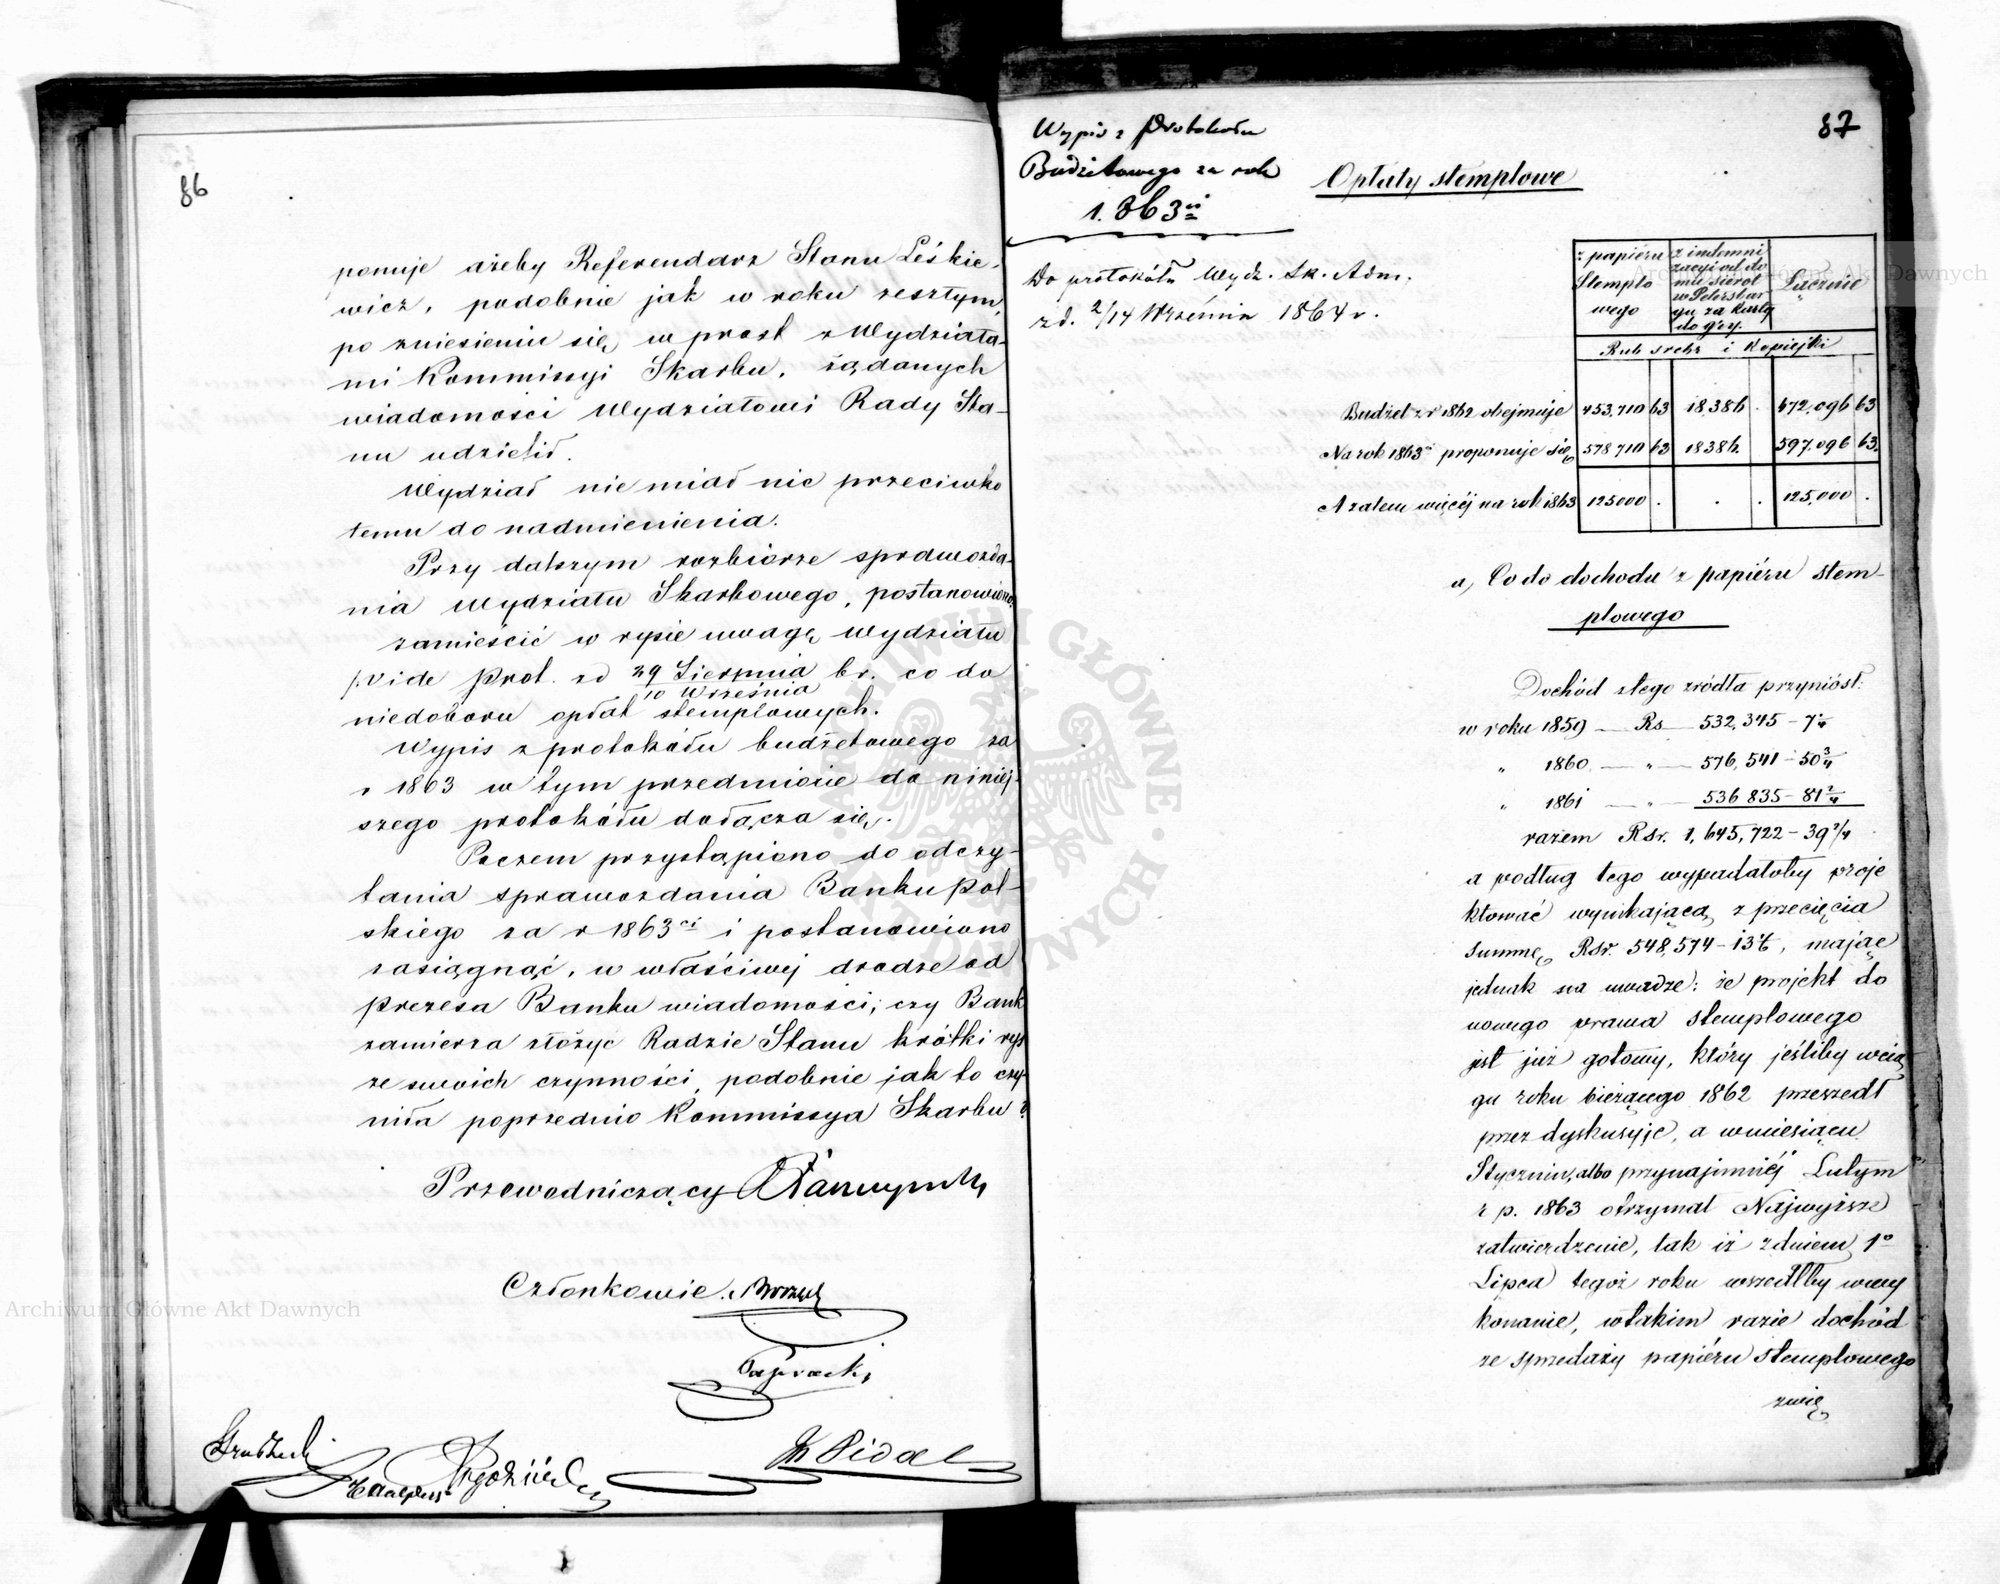 86
ponuje ażeby Referendarz Stanu Leśkie-
wicz, podobnie jak w roku zeszłym,
po zniesieniu się w prost z Wydziała-
mi Kommissyi Skarbu, żądanych
wiadomości Wydziałowi Rady Sta-
nu udzielił.
Wydział nie miał nic przeciwko
temu do nadmienienia.
Przy dalszym rozbiorze sprawozda-
nia Wydziału Skarbowego, postanowiono
zamieścić w rysie uwagę Wydziału
/. Vide prot. zd 29 Sierpnia br. co do
10 Września
niedoboru opłat stemplowych.
Wypis z protokółu budżetowego za
r 1863 w tym przedmiocie do niniej-
szego protokółu dołącza się.
Poczem przystąpiono do odczy-
tania sprawozdania Banku Pol-
skiego za r 1863ci i postanowiono
zasięgnąć, w właściwej drodze od
prezesa Banku wiadomości, czy Bank
zamierza złożyć Radzie Stanu krótki rys
ze swoich czynności, podobnie jak to czy-
niła poprzednio Kommissya Skarbu?
Przewodniczący
Członkowie.
87
Wypis z Protokołu
Budżetowego za rok
1.863ci
Do protokółu Wydz. Sk. Adm.
z d. 2/14 Września 1864 r.
Opłaty stemplowe
z papiéru
Stemplo
wego
z indemni
zacyi od do
mu sierot
w Petersbur
gu za karty
do gry.
Łącznie
Rub srebr i Kopiejki
Budżet z r 1862 obejmuje 453,710 63 18,386 . 472,096 63
Na rok 1863 proponuje się 578 710 63 18386. 597,096 63.
A zatem więcéj na rok 1863 125000 . . . 125,000 .
a, Co do dochodu z papiéru stem-
plowego
Dochód z tego źródła przyniósł:
w roku 1859 — Rs — 532,345 - 7 1/4
" 1860 — " — 576,541 - 50 3/4
" 1861 — " — 536 835 - 81 2/4
razem Rsr. 1,645,722 - 39 2/4
a podług tego wypadałoby proje
ktować wynikającą z przecięcia
summę Rsr. 548,574 - 13, mając
jednak na uwadze: że projekt do
nowego prawa stemplowego
jest już gotowy, który jeśliby w cią
gu roku bieżącego 1862 przeszedł
przez dyskusyję, a w miesiącu
Styczniu, albo przynajmniéj Lutym
r p. 1863 otrzymał Najwyższe
zatwierdzenie, tak iż z dniem 1o
Lipca tegoż roku wszedłby w wy
konanie, w takim razie dochód
ze sprzedaży papiéru stemplowego
zwię
Archiwum Główne Akt Dawnych
Archiwum Główne Akt Dawnych
ARCHIWUM GŁÓWNE AKT DAWNYCH